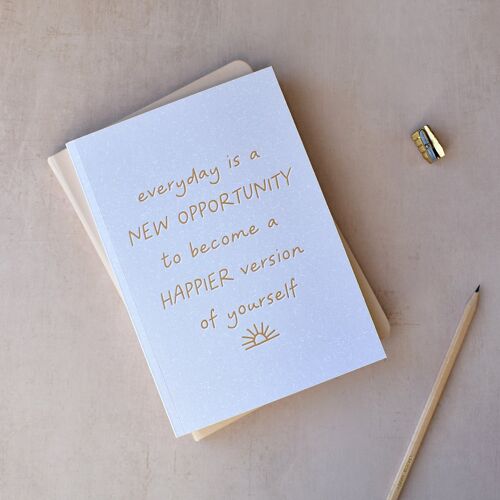 everyday is a
NEW OPPORTUNITY
to become a
HAPPIER version
of yourself